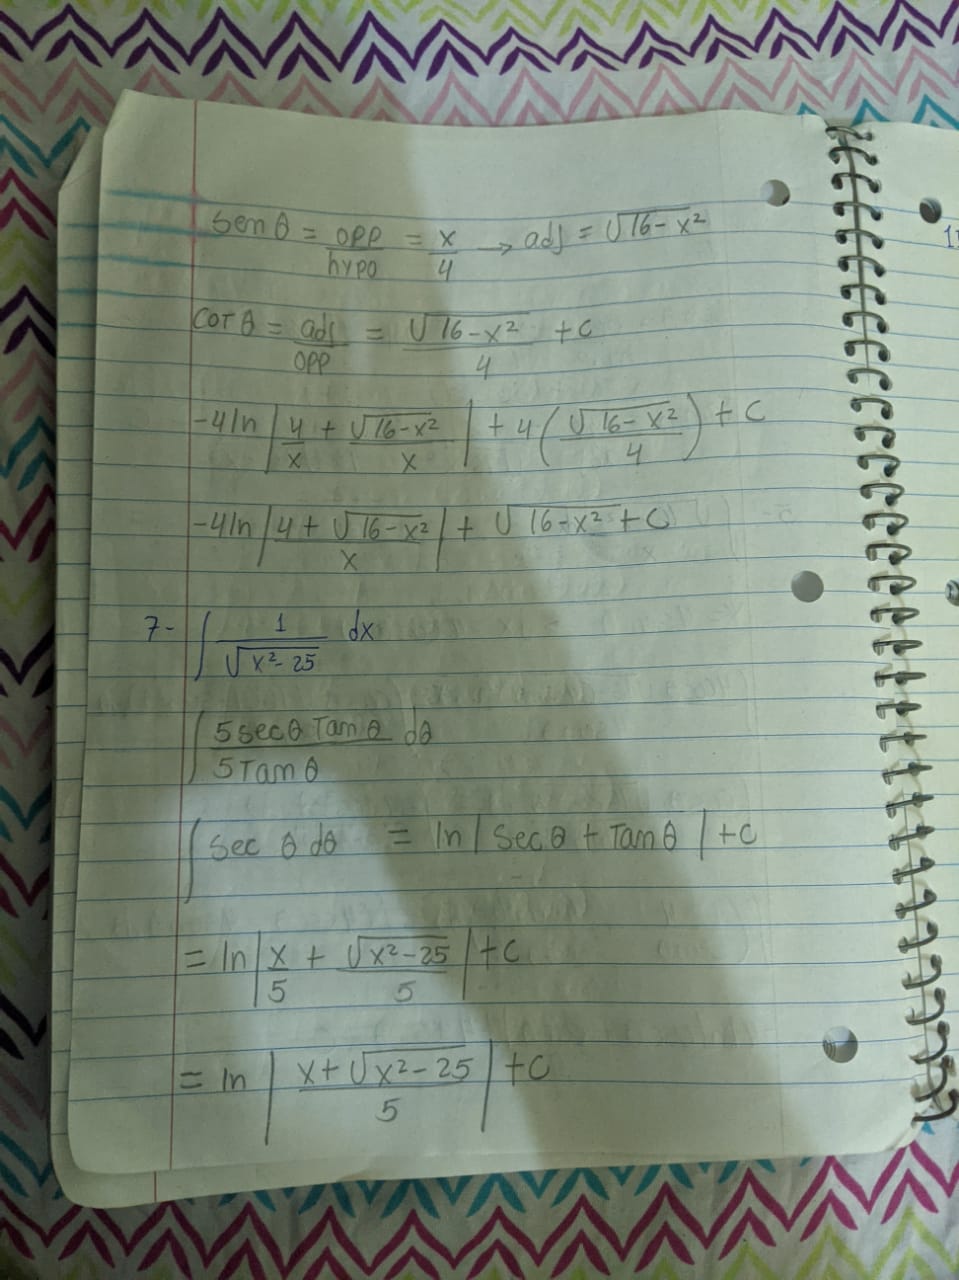 sen θ = opp/hypo = x/4 → adj = √16-x²
cot θ = adj/opp = √16-x²/4 + c
-4ln |4/x + √16-x²/x| + 4(√16-x²/4) + C
-4ln |4 + √16-x²/x| + √16-x² + C
7- ∫ 1/√x²-25 dx
∫ 5secθ Tanθ/5Tanθ dθ
∫ sec θ dθ = ln | secθ + Tanθ | + C
= ln |x/5 + √x²-25/5| + C
= ln | x+√x²-25/5 | + C